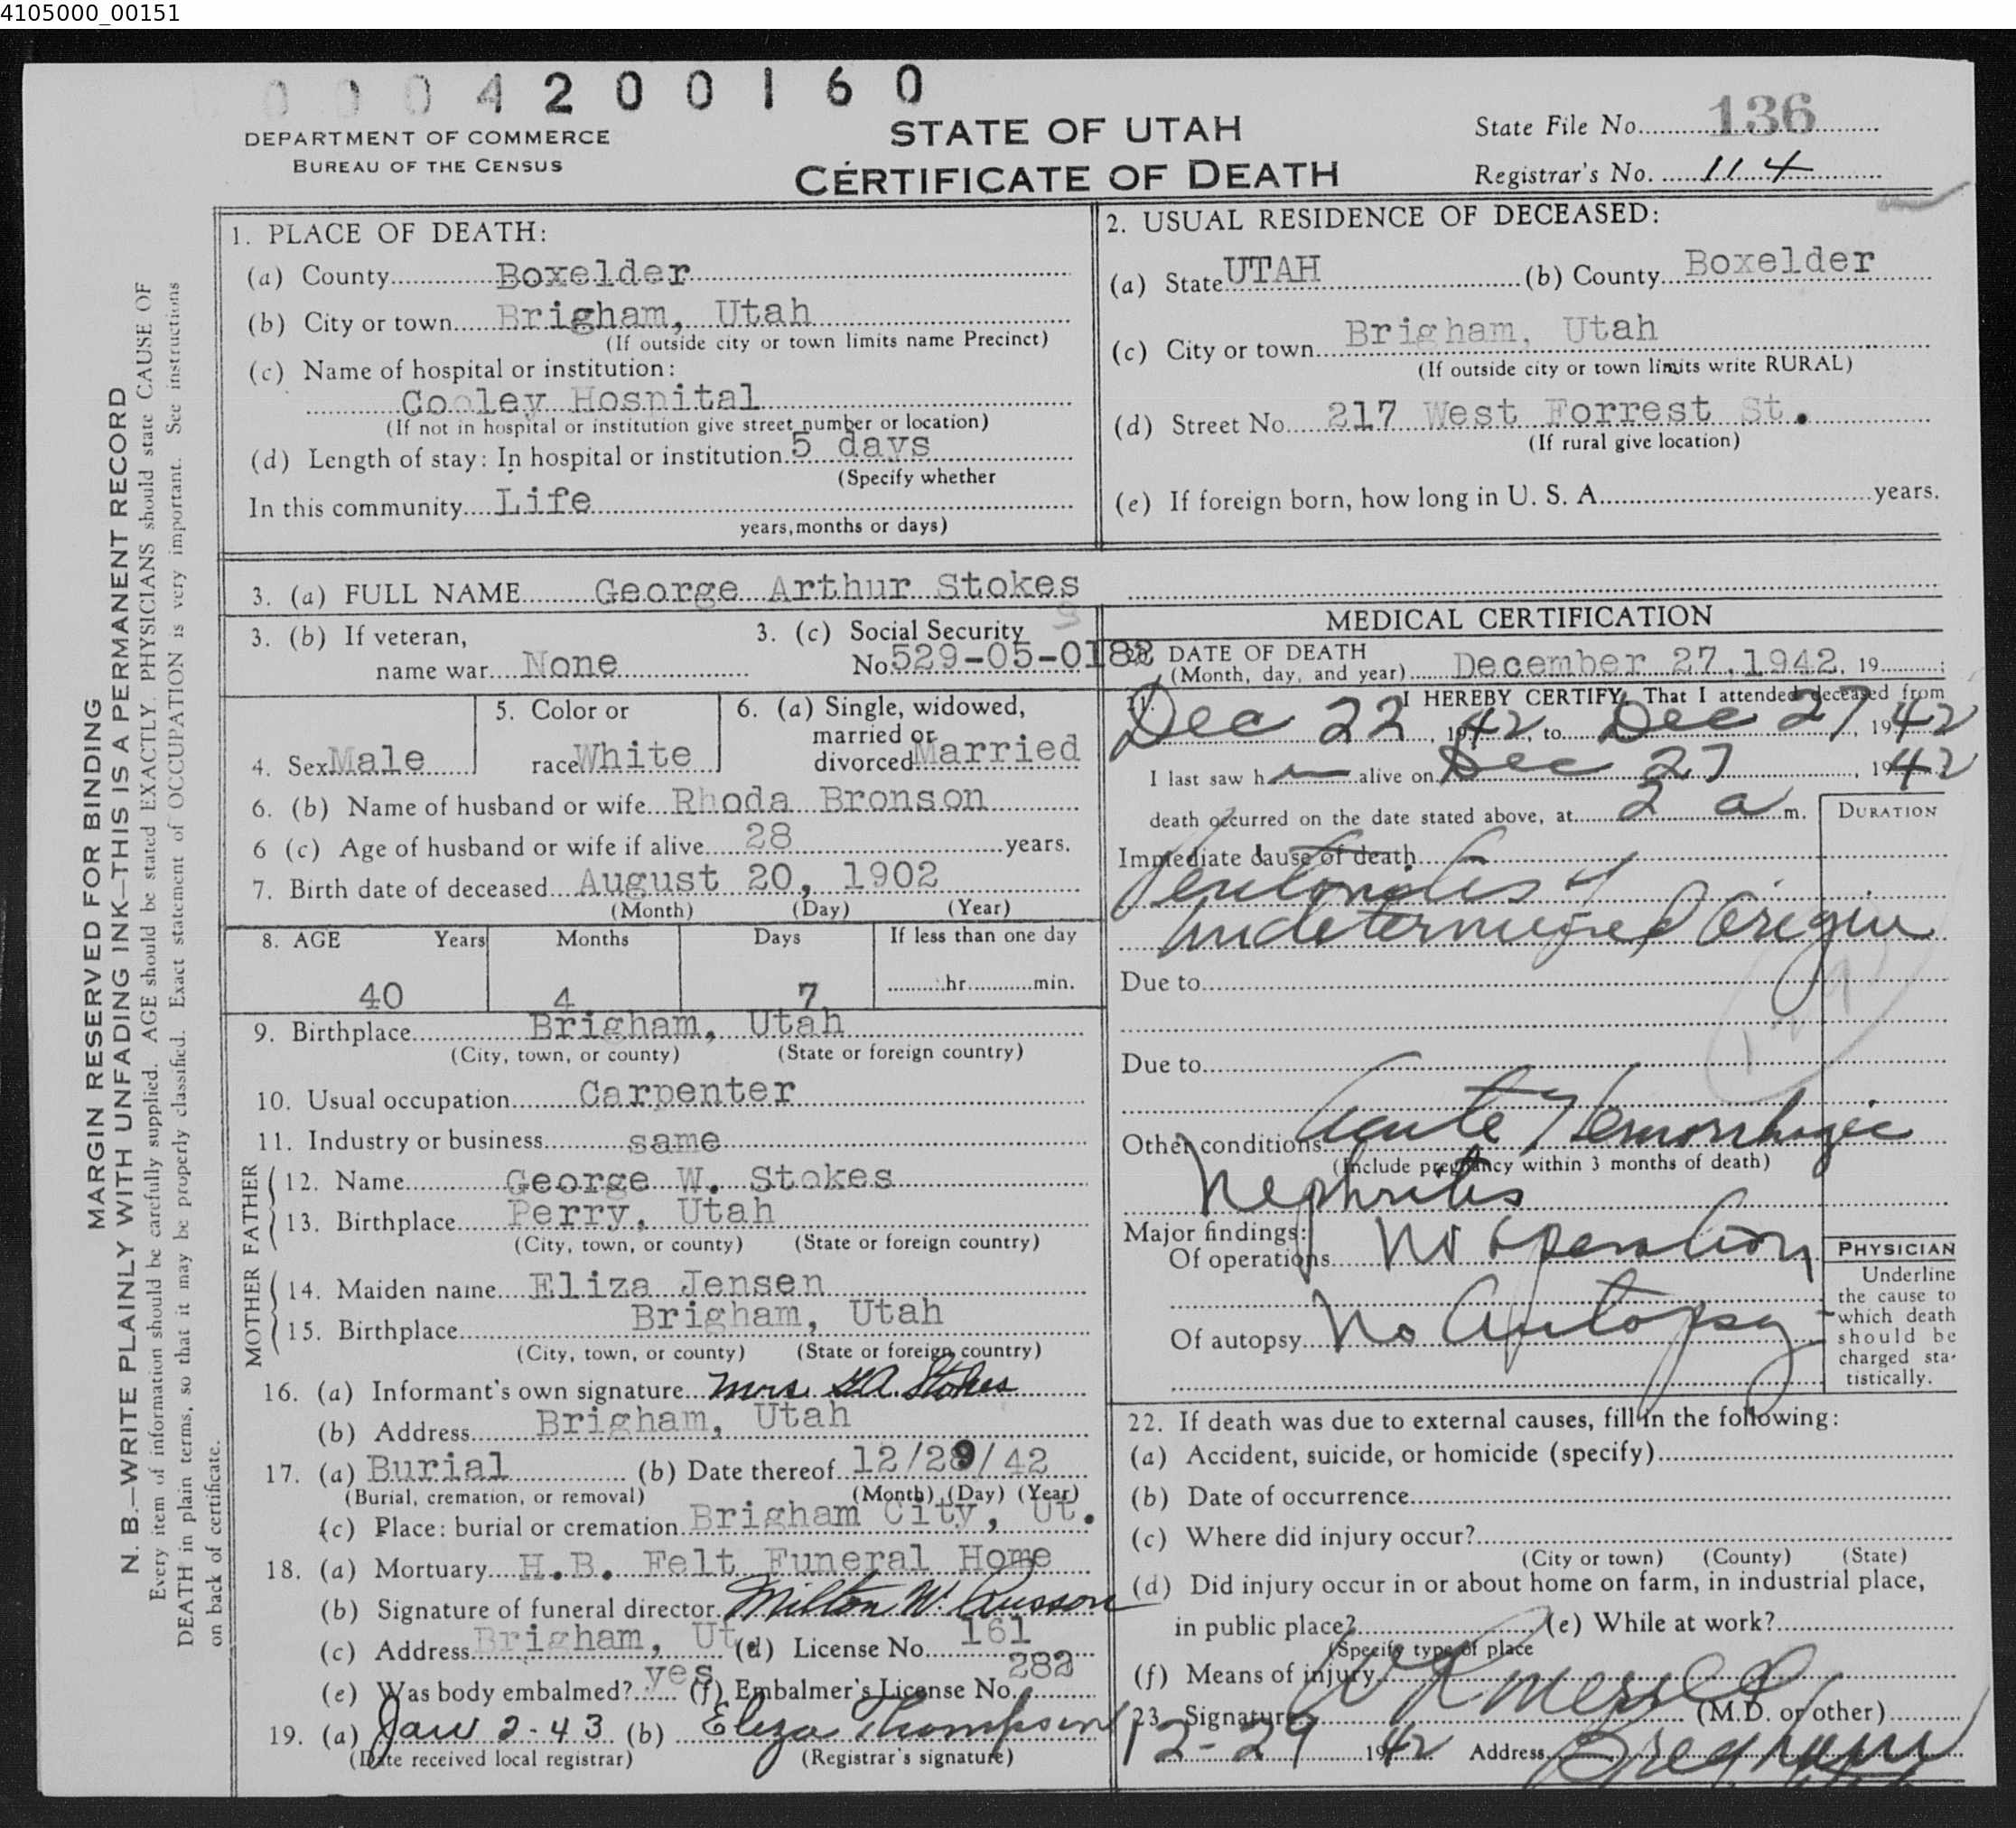 4105000_00151
0004200160
DEPARTMENT OF COMMERCE
BUREAU OF THE CENSUS
STATE OF UTAH
CERTIFICATE OF DEATH
State File No. 136
Registrar's No. 114
MARGIN RESERVED FOR BINDING
N. B.—WRITE PLAINLY WITH UNFADING INK—THIS IS A PERMANENT RECORD
Every item of information should be carefully supplied. AGE should be stated EXACTLY. PHYSICIANS should state CAUSE OF
DEATH in plain terms, so that it may be properly classified. Exact statement of OCCUPATION is very important. See instructions
on back of certificate.
1. PLACE OF DEATH:
(a) County Boxelder
(b) City or town Brigham, Utah
(If outside city or town limits name Precinct)
(c) Name of hospital or institution:
Cooley Hospital
(If not in hospital or institution give street number or location)
(d) Length of stay: In hospital or institution 5 days
(Specify whether
In this community Life
years, months or days)
2. USUAL RESIDENCE OF DECEASED:
(a) State UTAH (b) County Boxelder
(c) City or town Brigham, Utah
(If outside city or town limits write RURAL)
(d) Street No. 217 West Forrest St.
(If rural give location)
(e) If foreign born, how long in U. S. A. years.
3. (a) FULL NAME George Arthur Stokes
3. (b) If veteran,
name war None
3. (c) Social Security
No. 529-05-0188
4. Sex Male
5. Color or
race White
6. (a) Single, widowed,
married or
divorced Married
6. (b) Name of husband or wife Rhoda Bronson
6 (c) Age of husband or wife if alive 28 years.
7. Birth date of deceased August 20, 1902
(Month) (Day) (Year)
8. AGE Years Months Days If less than one day
40 4 7 hr. min.
9. Birthplace Brigham, Utah
(City, town, or county) (State or foreign country)
10. Usual occupation Carpenter
11. Industry or business same
FATHER
12. Name George W. Stokes
13. Birthplace Perry, Utah
(City, town, or county) (State or foreign country)
MOTHER
14. Maiden name Eliza Jensen
15. Birthplace Brigham, Utah
(City, town, or county) (State or foreign country)
16. (a) Informant's own signature Mrs. G A Stokes
(b) Address Brigham, Utah
17. (a) Burial (b) Date thereof 12/29/42
(Burial, cremation, or removal) (Month) (Day) (Year)
(c) Place: burial or cremation Brigham City, Ut.
18. (a) Mortuary H.B. Felt Funeral Home
(b) Signature of funeral director Milton W. Russon
(c) Address Brigham, Ut. (d) License No. 161
(e) Was body embalmed? yes (f) Embalmer's License No. 282
19. (a) Jan 2-43 (b) Eliza Thompson
(Date received local registrar) (Registrar's signature)
MEDICAL CERTIFICATION
20. DATE OF DEATH
(Month, day, and year) December 27, 1942, 19 ;
21. I HEREBY CERTIFY, That I attended deceased from
Dec 22, 1942, to Dec 27, 1942
I last saw h im alive on Dec 27, 1942
death occurred on the date stated above, at 2 a m.
DURATION
Immediate cause of death
Peritonitis of
undetermined Origin
Due to
Due to
Other conditions Acute Hemorrhagic
(Include pregnancy within 3 months of death)
Nephritis
Major findings:
Of operations No operation
Of autopsy No Autopsy
PHYSICIAN
Underline
the cause to
which death
should be
charged sta-
tistically.
22. If death was due to external causes, fill in the following:
(a) Accident, suicide, or homicide (specify)
(b) Date of occurrence
(c) Where did injury occur?
(City or town) (County) (State)
(d) Did injury occur in or about home on farm, in industrial place,
in public place? (e) While at work?
(Specify type of place
(f) Means of injury
23. Signature W R Merrell (M.D. or other)
12-29 1942 Address Brigham